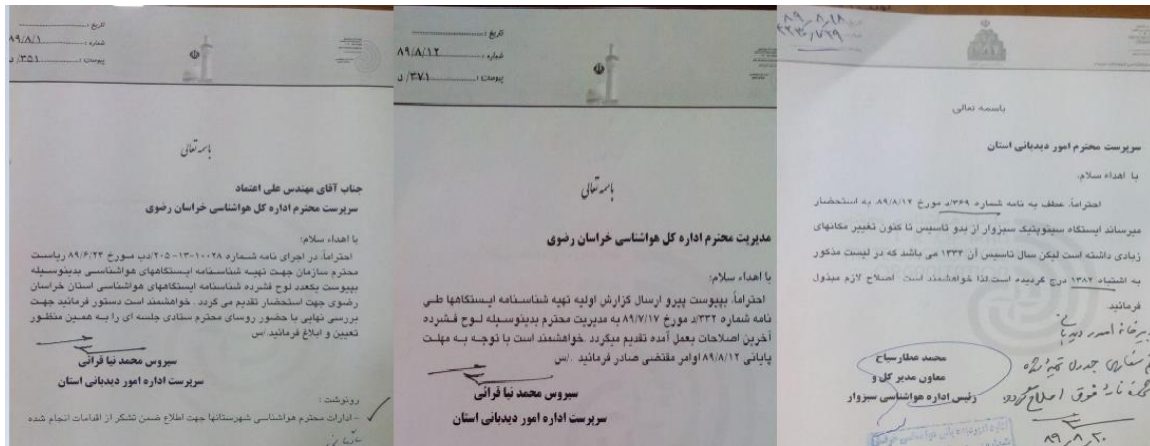 تاریخ :
شماره : ۸۹/۸/۱
پیوست : ۳۵۱/ د
باسمه تعالی
جناب آقای مهندس علی اعتماد
سرپرست محترم اداره کل هواشناسی خراسان رضوی
با اهداء سلام:
احتراماً، در اجرای نامه شماره ۱۰۰۲۸-۱۳-۲۰۵/دب مورخ ۸۹/۶/۲۳ ریاست
محترم سازمان جهت تهیه شناسنامه ایستگاههای هواشناسی بدینوسیله
بپیوست یکعدد لوح فشرده شناسنامه ایستگاههای هواشناسی استان خراسان
رضوی جهت استحضار تقدیم می گردد. خواهشمند است دستور فرمائید جهت
بررسی نهایی با حضور روسای محترم ستادی جلسه ای را به همین منظور
تعیین و ابلاغ فرمائید./س
سیروس محمد نیا قرائی
سرپرست اداره امور دیدبانی استان
رونوشت :
- ادارات محترم هواشناسی شهرستانها جهت اطلاع ضمن تشکر از اقدامات انجام شده
تاریخ :
شماره : ۸۹/۸/۱۲
پیوست : ۳۷۱/ د
باسمه تعالی
مدیریت محترم اداره کل هواشناسی خراسان رضوی
با اهداء سلام:
احتراماً، بپیوست پیرو ارسال گزارش اولیه تهیه شناسنامه ایستگاهها طی
نامه شماره ۳۳۲/د مورخ ۸۹/۷/۱۷ به مدیریت محترم بدینوسیله لوح فشرده
آخرین اصلاحات بعمل آمده تقدیم میگردد. خواهشمند است با توجه به مهلت
پایانی ۸۹/۸/۱۲ اوامر مقتضی صادر فرمائید ./س
سیروس محمد نیا قرائی
سرپرست اداره امور دیدبانی استان
۸۹/۸/۱۸
باسمه تعالی
سرپرست محترم امور دیدبانی استان
با اهداء سلام،
احتراماً، عطف به نامه شماره ۳۶۹/د مورخ ۸۹/۸/۱۲ به استحضار
میرساند ایستگاه سینوپتیک سبزوار از بدو تاسیس تا کنون تغییر مکانهای
زیادی داشته است لیکن سال تاسیس آن ۱۳۳۲ می باشد که در لیست مذکور
به اشتباه ۱۳۸۲ درج گردیده است لذا خواهشمند است اصلاح لازم مبذول
فرمائید.
محمد عطارسیاح
معاون مدیر کل و
رئیس اداره هواشناسی سبزوار
فوق اصلاح گردد
۸۹/۸/۲۰